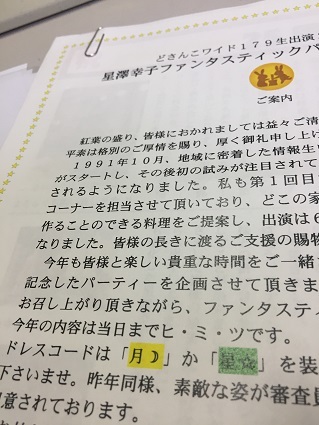 どさんこワイド179生出演
星澤幸子ファンタスティックパ
ご案内
紅葉の盛り、皆様におかれましては益々ご清
平素は格別のご厚情を賜り、厚く御礼申し上げ
1991年10月、地域に密着した情報生
がスタートし、その後初の試みが注目されて
されるようになりました。私も第1回目
コーナーを担当させて頂いており、どこの家
作ることのできる料理をご提案し、出演は6
なりました。皆様の長きに渡るご支援の賜物
今年も皆様と楽しい貴重な時間をご一緒
記念したパーティーを企画させて頂きま
お召し上がり頂きながら、ファンタスティ
今年の内容は当日までヒ・ミ・ツです。
ドレスコードは「月☽」か「星☆」を装
下さいませ。昨年同様、素敵な姿が審査員
意されております。